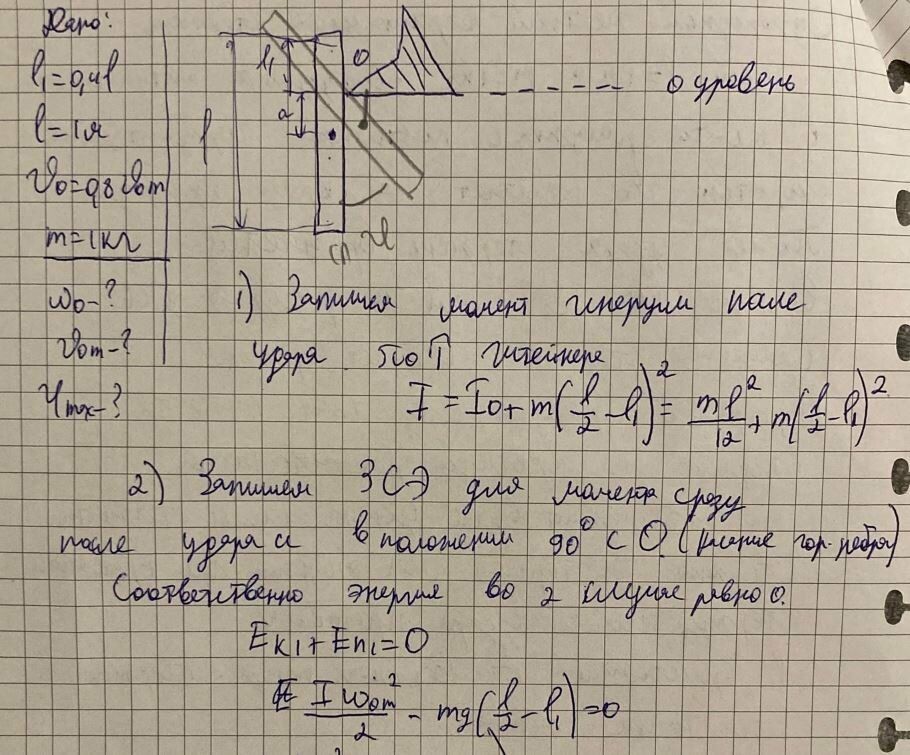 Дано:
l₁=0,4l
l=1м
V₀=0,8V₀m
m=1кг
ω₀-?
V₀m-?
φmax-?
l₁
O
l
a
0 уровень
1) Запишем момент инерции после
удара по Т Штейнера
I = I₀+m(l/2-l₁)²= ml²/12+m(l/2-l₁)²
2) Запишем ЗСЭ для момента сразу
после удара и в положении 90° с О. (касание гор. ребра)
Соответственно энергия во 2 случае равно 0.
Eк₁+Eп₁=0
Iω₀m²/2 - mg(l/2-l₁)=0